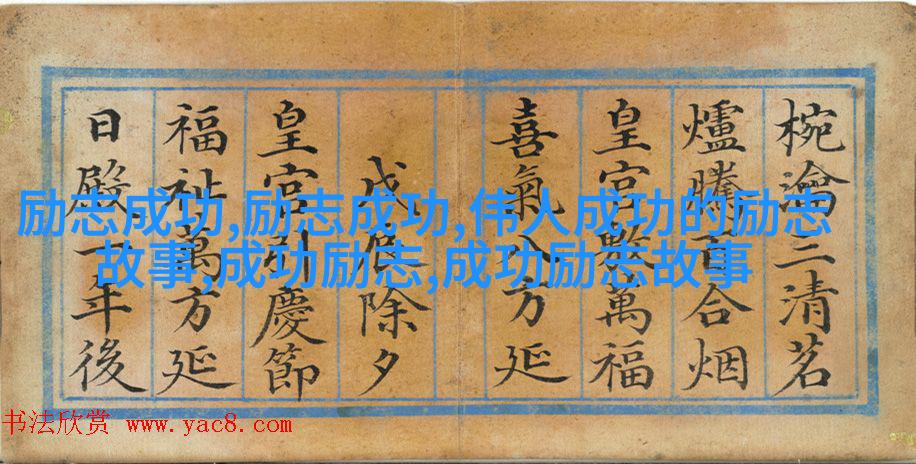 椀瀹三清茗
爐騰百合烟
皇宮數萬福
喜氣八方延
戊辰除夕
皇宮引慶節
福祉萬方延
日殿一年後
励志成功,励志成功,伟人成功的励志
故事,成功励志,成功励志故事
书法欣赏 www.yac8.com